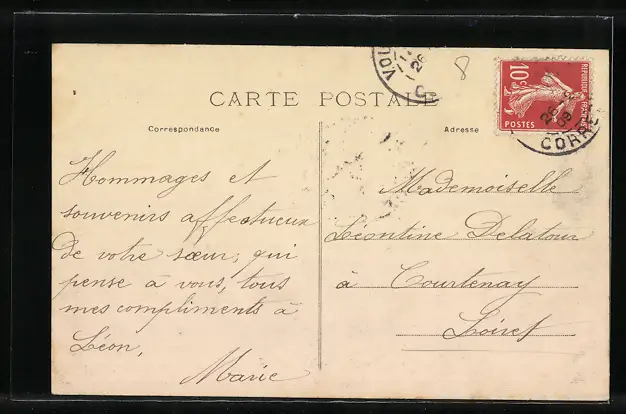 CARTE POSTALE
Correspondance
Adresse
8
10c
REPUBLIQUE FRANÇAISE
POSTES
VOU
26
26
09
CORRE
Hommages et
souvenirs affectueux
de votre sœur, qui
pense à vous, tous
mes compliments à
Léon,
Marie
Mademoiselle
Léontine Delatour
à Courtenay
Loiret